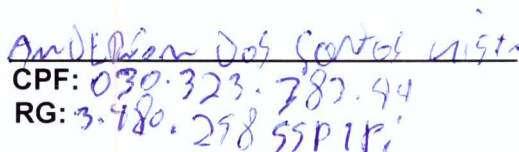 Anderson Dos Santos
CPF: 030.323.383.44
RG: 3.480.298 SSP/Pi